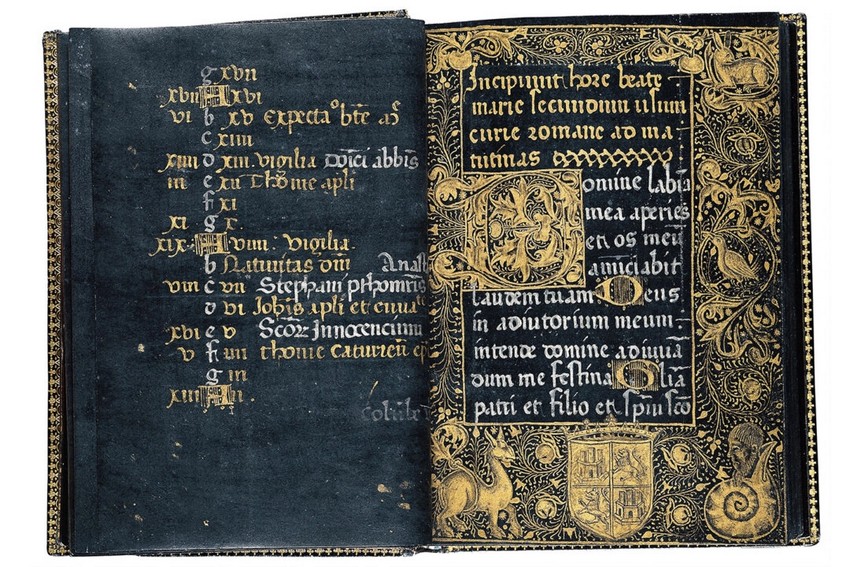 g xvii
xvii A xvi
vi b xv Expectaᵒ bt̄e
c xiiii
xiiii d xiii vigilia Dñici abb̄is
iii e xii Thome apli
f xi
xi g x
xix A viiii vigilia
b Nativitas dñi
viii c vii Stephani
d vi Ioħis apli et
xvi e v Sc̄oꝝ Innocencium
v f iiii thome
g iii
xiii A ii
Incipiunt hore beate
marie secundum usum
curie romane ad ma
tutinas
Domine labia
mea aperies
et os meū
anūciabit
laudem tuam Deus
in adiutorium meum
intende domine adiuuā
dum me festina Gl̄ia
patri et filio et sp̄iui sc̄o